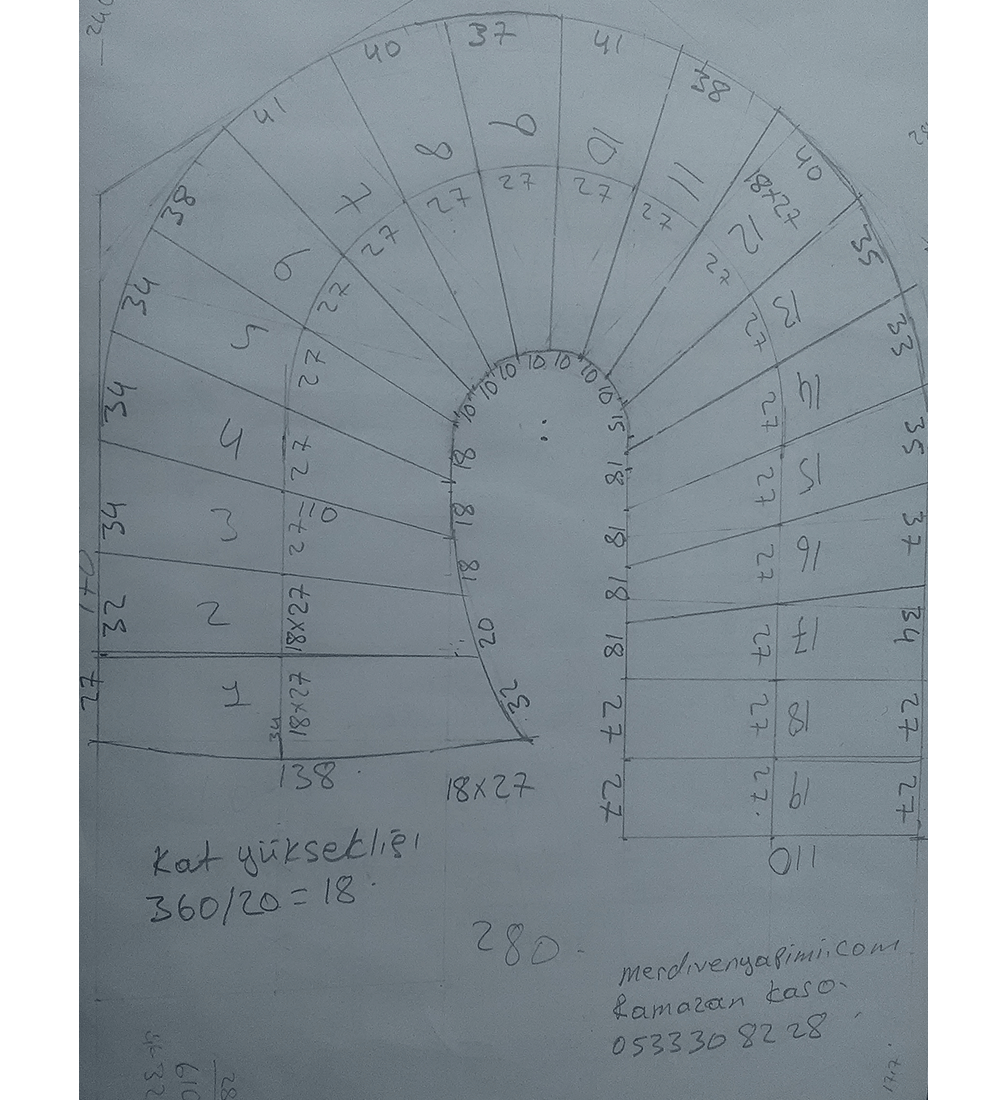 240
40
37
41
41
38
38
40
8
9
10
11
7
27
27
27
27
18x27
12
27
27
38
6
27
35
34
5
27
13
27
33
10
10
10
10
10
10
10
10
15
34
4
27
18
14
27
18
35
34
3
27
10
18
15
27
18
37
170
32
2
18x27
18
20
16
27
18
34
27
1
18x27
34
32
17
27
18
27
18
27
27
19
27
27
27
138
18x27
110
Kat yüksekliği
360/20=18
280
merdivenyapimi.com
Ramazan Kaso
0533 30 82 28